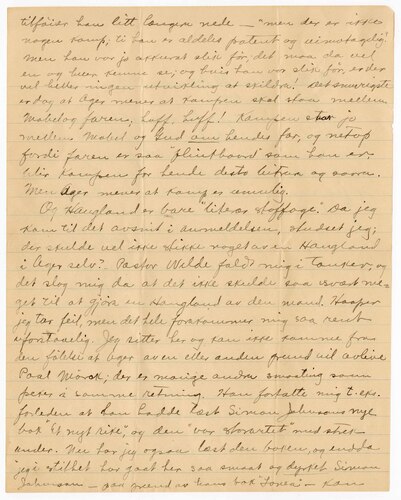 tilføier han litt længere nede – "men der er ikke
nogen kamp, ti han er aldeles patent og uimotagelig!
Men han var jo akkurat slik før, det maa da vel
en og hver kunne se; og hvis han var slik før, er der
vel heller ingen utvikling at skildre! Det snurrigste
er dog at Ager mener at kampen skal staa mellem
Mabel og faren, huff, huff! Kampen staar jo
mellem Mabel og Gud om hendes far, og netop
fordi faren er saa "flinthaard" som han er,
blir kampen for hende desto bitrere og svære.
Men Ager mener at kamp er umulig.
Og Haugland er bare "literær stoffage". Da jeg
kom til det avsnit i anmeldelsen, studset jeg;
der skulde vel ikke stikke noget av en Haugland
i Ager selv? Pastor Welde faldt mig i tanker, og
det slog mig da at det ikke skulde saa svært me-
get til at gjøre en Haugland av den mand. Haaper
jeg tar feil, men det hele forekommer mig saa rent
uforstaaelig. Jeg sitter her og kan ikke komme fra
den følelse at Ager av en eller anden grund vil avlive
Paal Mørck; der er mange andre smaating som
peker i samme retning. Han fortalte mig t. eks.
forleden at han hadde læst Simon Johnsons nye
bok "Et nyt rike," og den "var storartet" med strek
under. Nu har jeg ogsaa læst den boken, og endda
jeg i stilhet har gaat her saa smaat og dyrket Simon
Johnson – paa grund av hans bok "Lonea" – kan